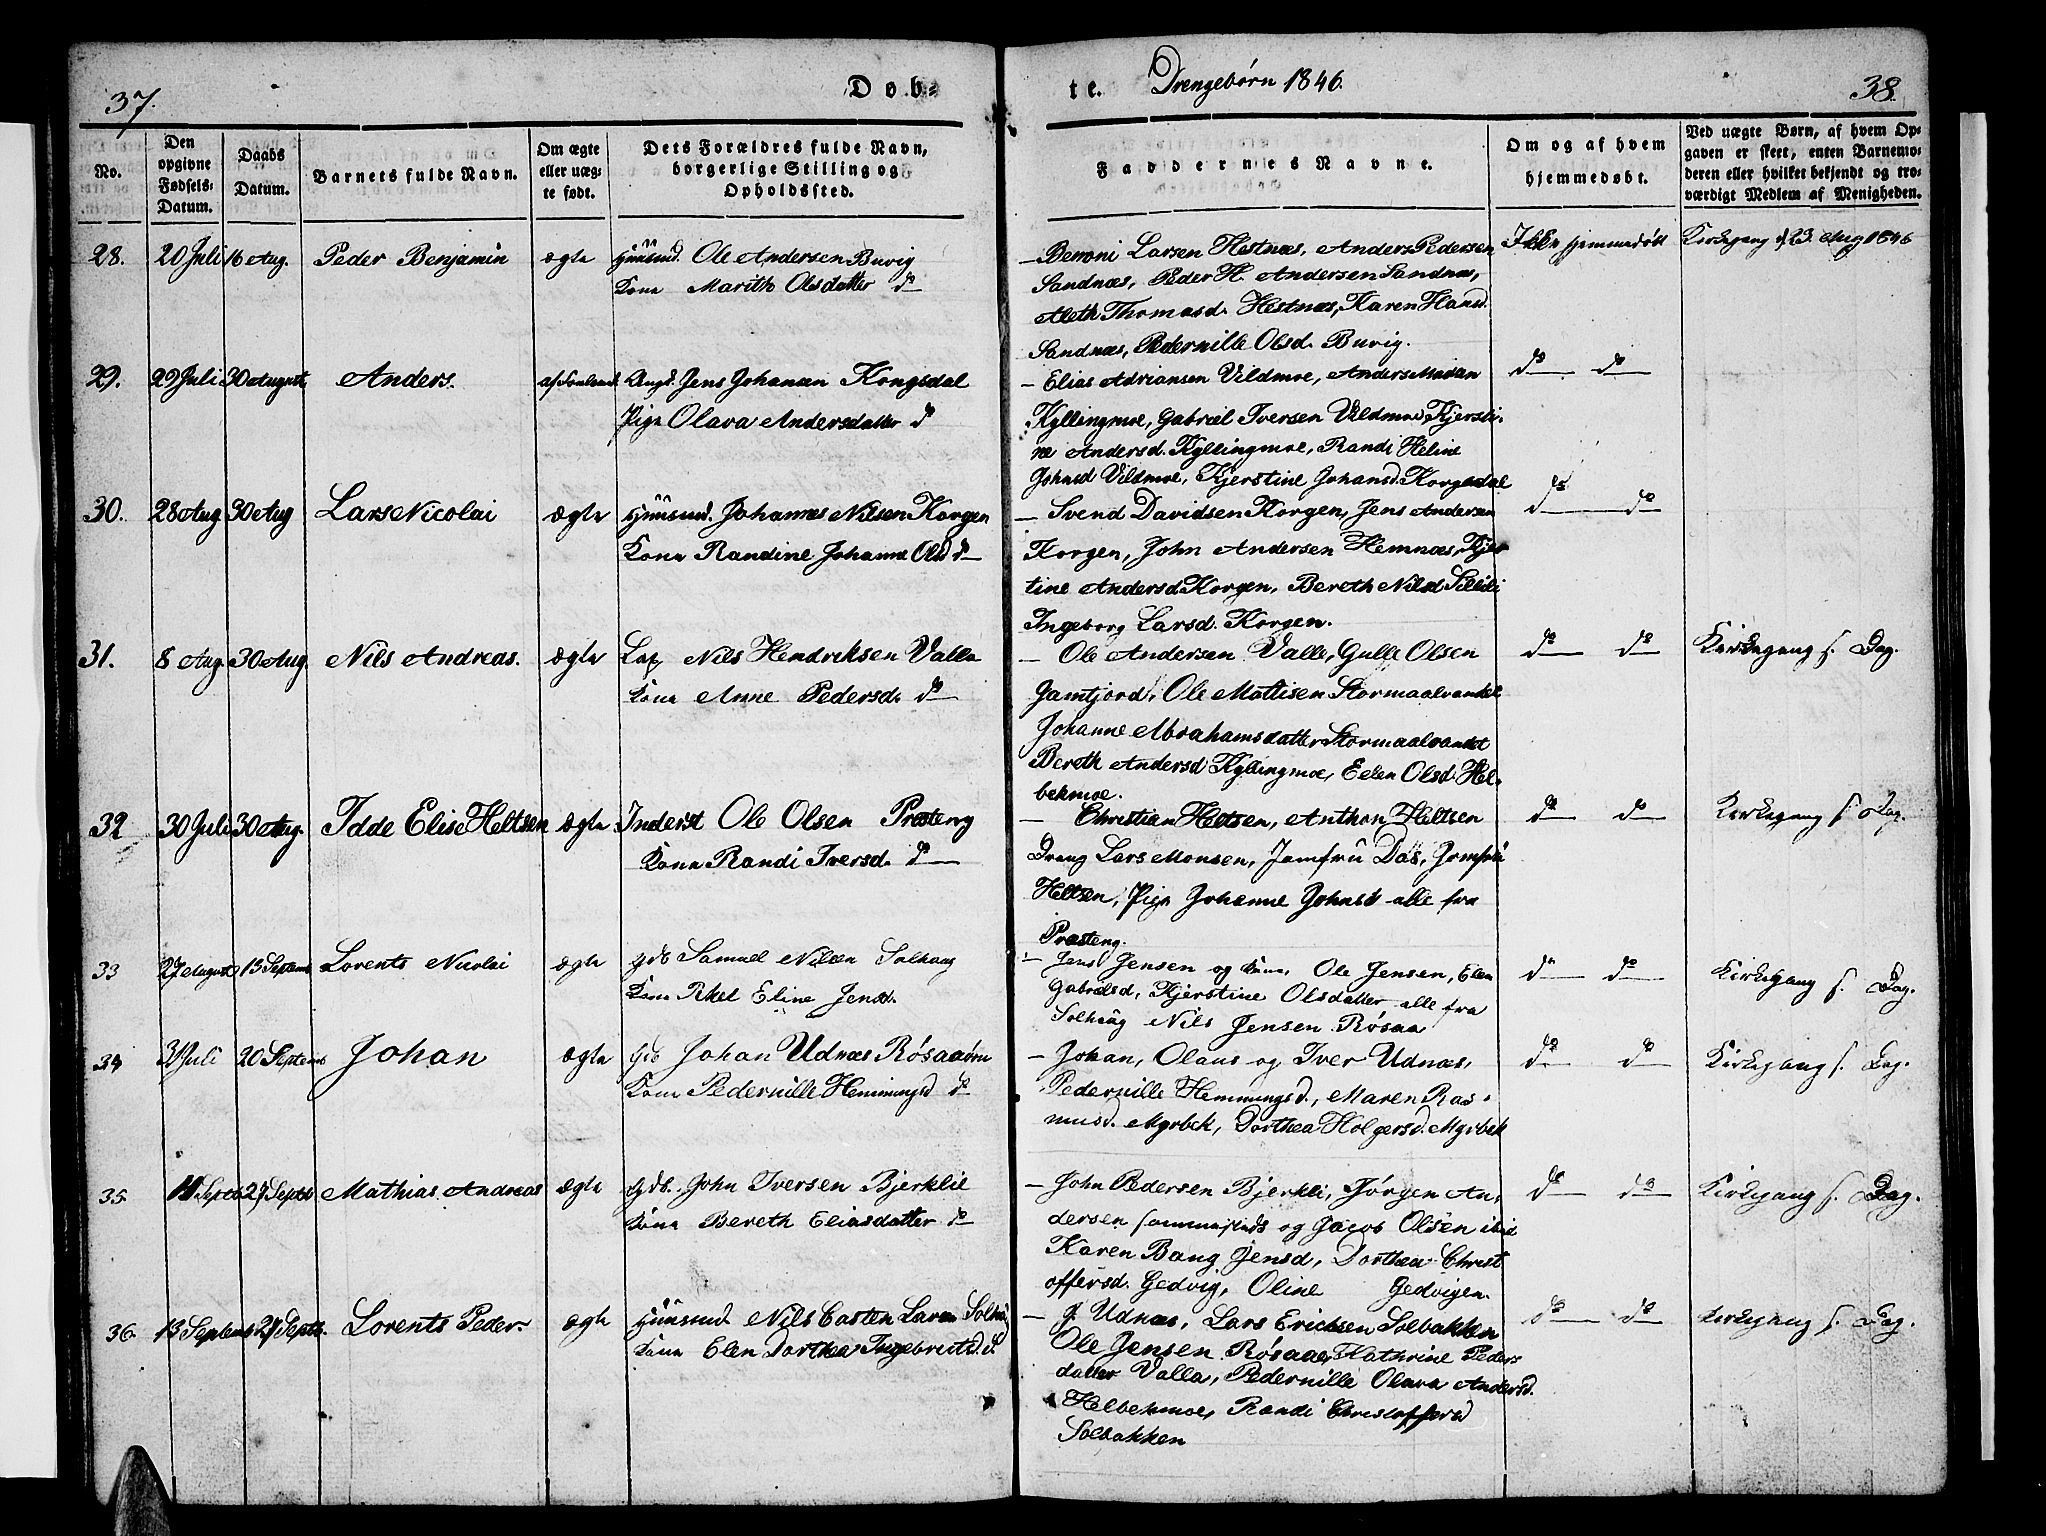 37.
Døb-
te. Drengebørn 1846.
38.
No.
Den opgivne Fødsels-Datum.
Daabs Datum.
Barnets fulde Navn.
Om ægte eller uægte født.
Dets Forældres fulde Navn, borgerlige Stilling og Opholdssted.
Faddernes Navne.
Om og af hvem hjemmedøbt.
Ved uægte Børn, af hvem Opgaven er skeet, enten Barnemoderen eller hvilket bekjendt og troværdigt Medlem af Menigheden.
28. 20 Juli 16 Aug. Peder Benjamin ægte Huusmd. Ole Andersen Buvig
Kone Marith Olsdatter do
— Beroni Larsen Hestnæs, Anders Pedersen
Sandnæs, Peder H. Andersen Sandnæs,
Aleth Thomasd. Hestnæs, Karen Hansd.
Sandnæs, Pedernille Olsd. Buvig.
Ikke hjemmedøbt
Kirkegang d 23. Aug 1846
29. 29 Juli 30 August Anders. Ungk. Jens Johansen Kongsdal
Pige Olava Andersdatter do
— Elias Adriansen Vildmoe, Anders Madsen
Kyllingmoe, Gabriel Iversen Vildmoe, Kjersti-
ne Andersd. Kyllingmoe, Randi Heline
Johnsd Vildmoe, Kjerstine Johansd. Korgsdal
do do
30. 28 Aug 30 Aug Lars Nicolai ægte Huusmd. Johannes Nilsen Korgen
Kone Randine Johanne Olsd do
— Svend Davidsen Korgen, Jens Andersen
Korgen, John Andersen Hemnæs, Kjer
tine Andersd Korgen, Bereth Nilsd
Ingeborg Larsd. Korgen.
do do
31. 8 Aug. 30 Aug. Nils Andreas. ægte Lap Nils Hendriksen Valla
Kone Anne Pedersd. do
— Ole Andersen Valle, Gulle Olsen
Gamtjord, Ole Mattisen Stormaalvandet
Johanne Abrahamsdatter Stormaalvandet
Bereth Andersd Kyllingmoe, Ellen Olsd. Hel-
bekmoe.
do do
Kirkegang s. Dag.
32 30 Juli 30 Aug. Idde Elise Heltsen ægte Inderst Ole Olsen Præsteng
Kone Randi Iversd. do
— Christian Heltsen, Anthon Heltsen
Dreng Lars Monsen, Jomfru Das, Jomfru
Heltsen, Pige Johanne Johnsd alle fra
Præsteng.
do do
Kirkegang s. Dag.
33 27 August 13 Septemb Lorents Nicolai ægte Gdb Samuel Nilsen Solhaug
Kone Eline Jensd.
— Jens Jensen og Kone, Ole Jensen, Elen
Gabrielsd, Kjerstine Olsdatter alle fra
Solhaug Nils Jensen Røsaa
do do
Kirkegang s. Dag.
34 31 Juli 20 Septemb Johan ægte Gdb Johan Udnæs Røsaaøren
Kone Pedernille Hemmingsd do
— Johan, Olaus og Iver Udnæs,
Pedernille Hemmingsd., Maren Ras-
musd. Myrbek, Dorthea Holgersd. Myrbek
do do
Kirkegang s. Dag.
35. 11 Septb 27 Septb Mathias Andreas ægte Gdb. John Iversen Bjerklie
Kone Bereth Eliasdatter do
— John Pedersen Bjerkli, Jørgen An-
dersen og Jacob Olsen ibid
Karen Bang Jensd, Dorthea Christ
offersd. Gedvig, Oline Gedvigen.
do do
Kirkegang s. Dag.
36. 13 Septemb 27 Septb. Lorents Peder. ægte Huusmd Nils Casten Larsen
Kone Elen Dorthea Ingebrigtsd. do
— J. Udnæs, Lars Ericksen Solbakken
Ole Jensen Røsaae, Kathrine Peders
datter Valla, Pedernille Olava Andersd.
Helbekmoe, Randi Christoffersd
Solbakken
do do
Kirkegang s. Dag.